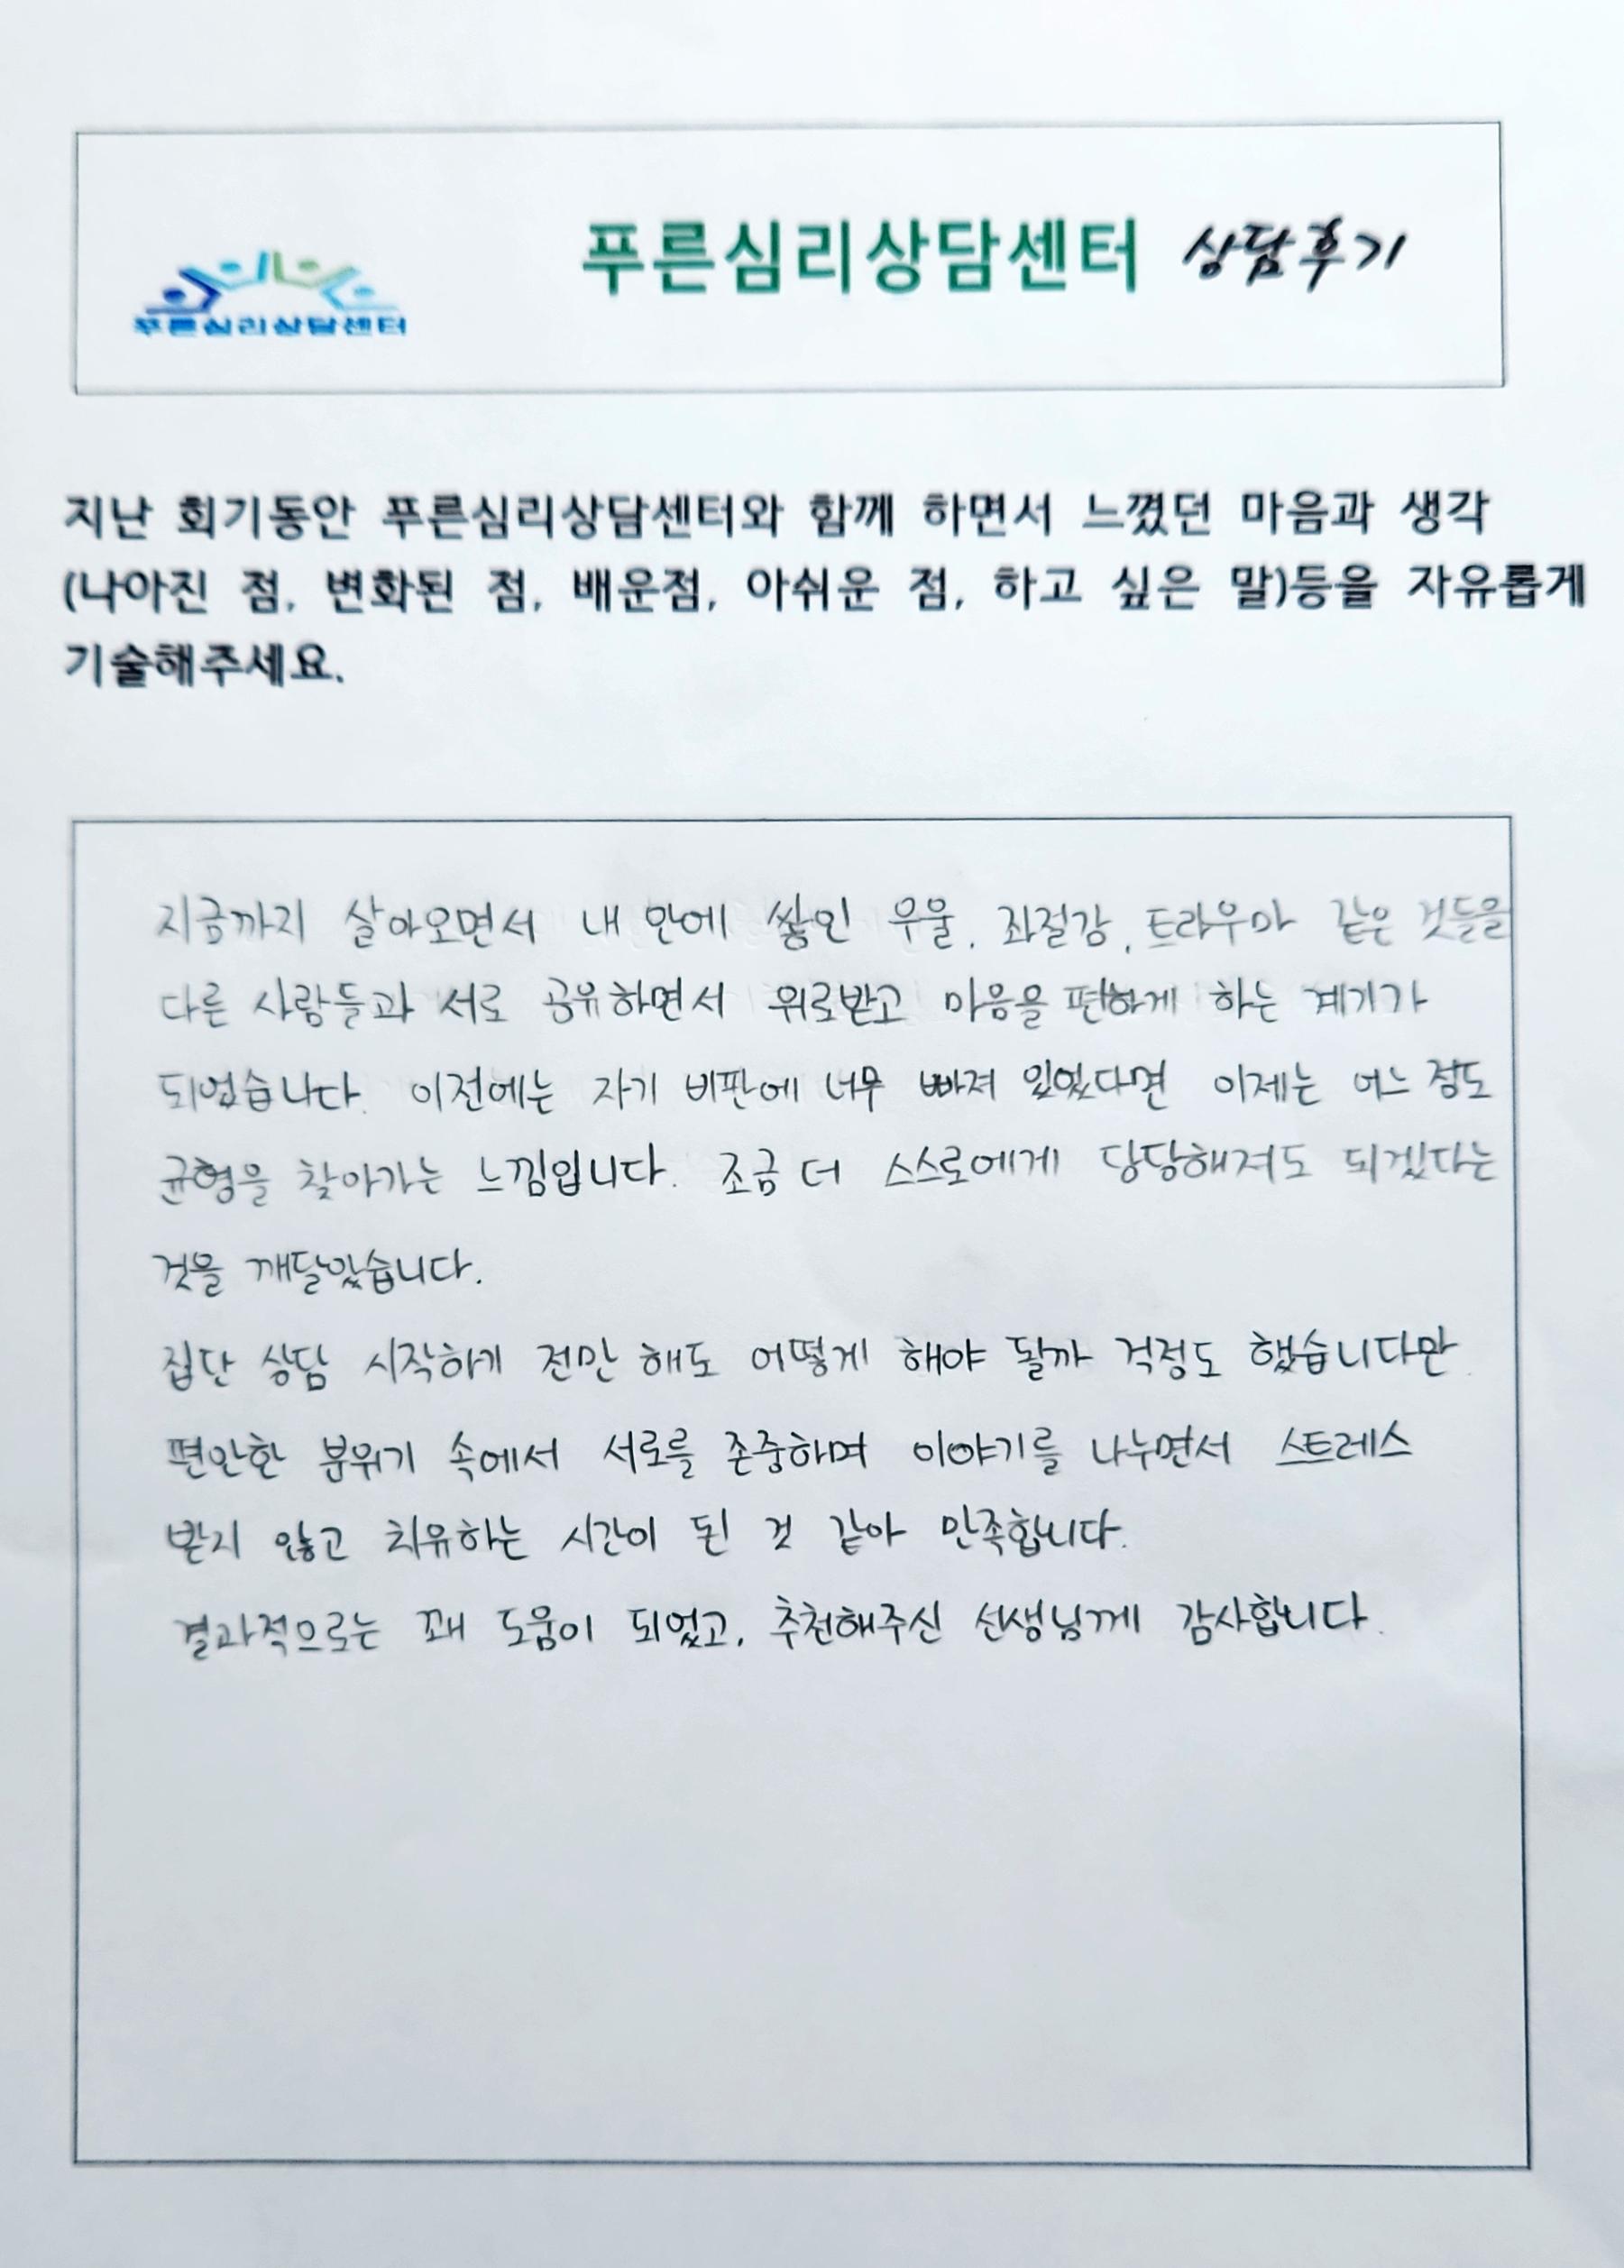 푸른심리상담센터
푸른심리상담센터 상담후기
지난 회기동안 푸른심리상담센터와 함께 하면서 느꼈던 마음과 생각
(나아진 점, 변화된 점, 배운점, 아쉬운 점, 하고 싶은 말)등을 자유롭게
기술해주세요.
지금까지 살아오면서 내 안에 쌓인 우울, 좌절감, 트라우마 같은 것들을
다른 사람들과 서로 공유하면서 위로받고 마음을 편하게 하는 계기가
되었습니다. 이전에는 자기 비판에 너무 빠져 있었다면 이제는 어느 정도
균형을 찾아가는 느낌입니다. 조금 더 스스로에게 당당해져도 되겠다는
것을 깨달았습니다.
집단 상담 시작하기 전만 해도 어떻게 해야 될까 걱정도 했습니다만
편안한 분위기 속에서 서로를 존중하며 이야기를 나누면서 스트레스
받지 않고 치유하는 시간이 된 것 같아 만족합니다.
결과적으로는 꽤 도움이 되었고, 추천해주신 선생님께 감사합니다.